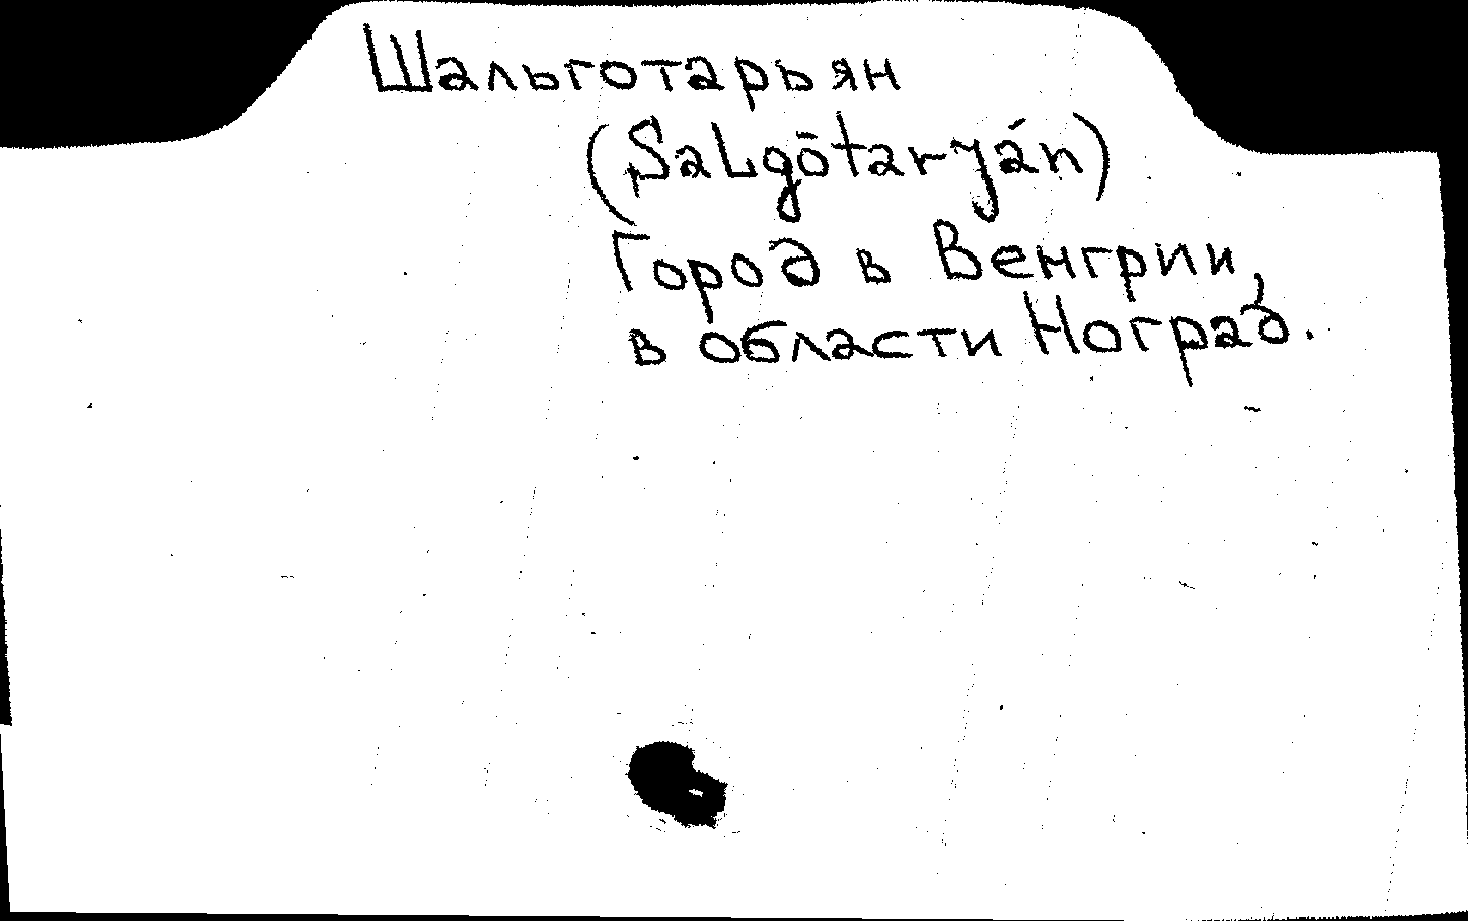 Шальготарьян
(Salgōtaryán)
Город в Венгрии,
в области Ноград.